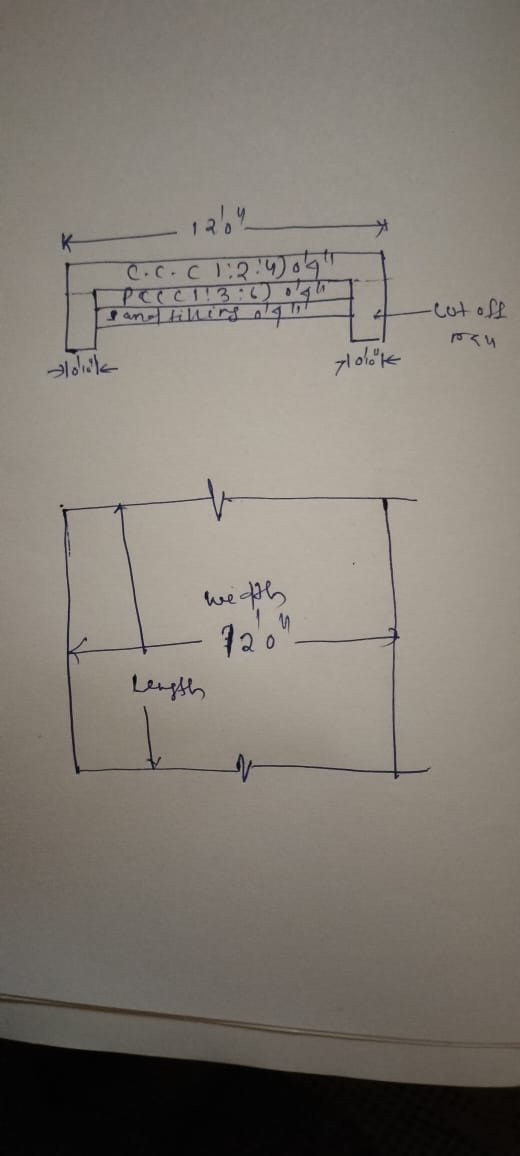 12'0"
C.C.C 1:2:4) 0'4"
PCC C 1:3:6) 0'4"
Sand filling 0'4"
cut off
0'10"
0'10"
width
12'0"
Length